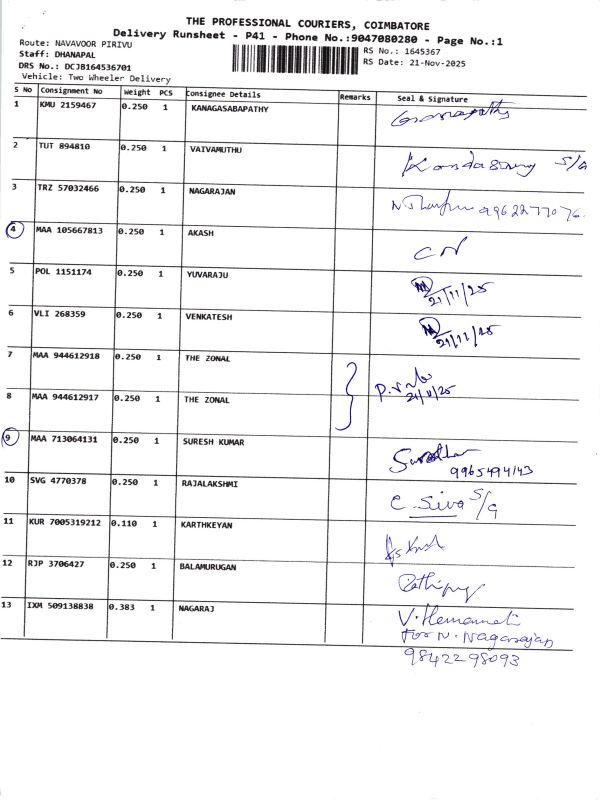 THE PROFESSIONAL COURIERS, COIMBATORE
Delivery Runsheet - P41 - Phone No.:9047080280 - Page No.:1
Route: NAVAVOOR PIRIVU
Staff: DHANAPAL
DRS No.: DCJB164536701
Vehicle: Two Wheeler Delivery
RS No.: 1645367
RS Date: 21-Nov-2025
S No Consignment No Weight PCS Consignee Details Remarks Seal & Signature
1 KMU 2159467 0.250 1 KANAGASABAPATHY
2 TUT 894810 0.250 1 VAIVAMUTHU Kandasamy S/G
3 TRZ 57032466 0.250 1 NAGARAJAN 9962277076.
4 MAA 105667813 0.250 1 AKASH CN
5 POL 1151174 0.250 1 YUVARAJU 21/11/25
6 VLI 268359 0.250 1 VENKATESH 21/11/25
7 MAA 944612918 0.250 1 THE ZONAL
8 MAA 944612917 0.250 1 THE ZONAL 21/11/25
9 MAA 713064131 0.250 1 SURESH KUMAR
9965494143
10 SVG 4770378 0.250 1 RAJALAKSHMI C. Siva S/G
11 KUR 7005319212 0.110 1 KARTHKEYAN
12 RJP 3706427 0.250 1 BALAMURUGAN
13 IXM 509138838 0.383 1 NAGARAJ V. Hemamati
for N. Nagarajan
9842298093